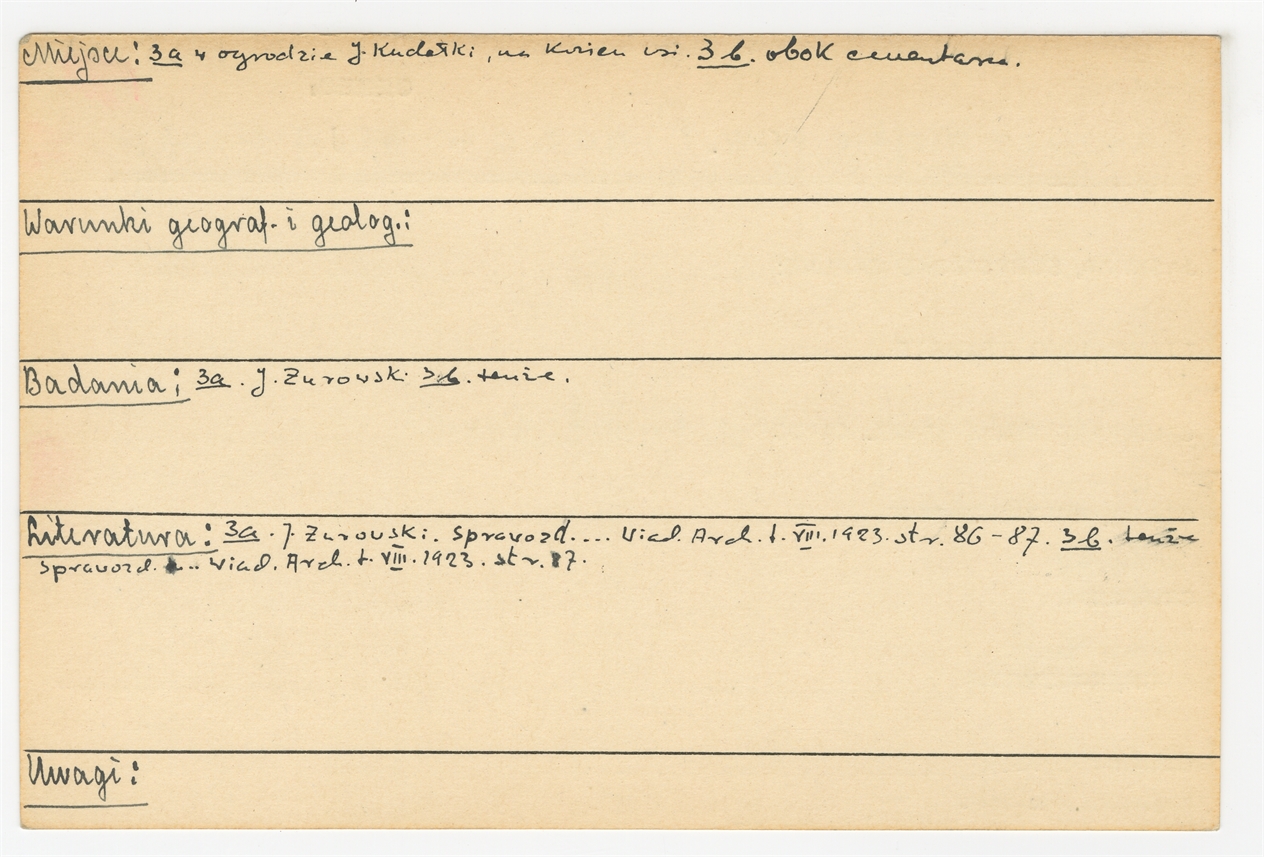 Miejsce: 3a w ogrodzie J. Kudełki, na końcu wsi. 3b. obok cmentarza.
Warunki geograf. i geolog.:
Badania: 3a. J. Żurowski 3b. tenże.
Literatura: 3a. J. Żurowski. Sprawozd.... Wiad. Arch. t. VIII. 1923. str. 86-87. 3b. tenże
Sprawozd. ... Wiad. Arch. t. VIII. 1923. str. 87.
Uwagi: